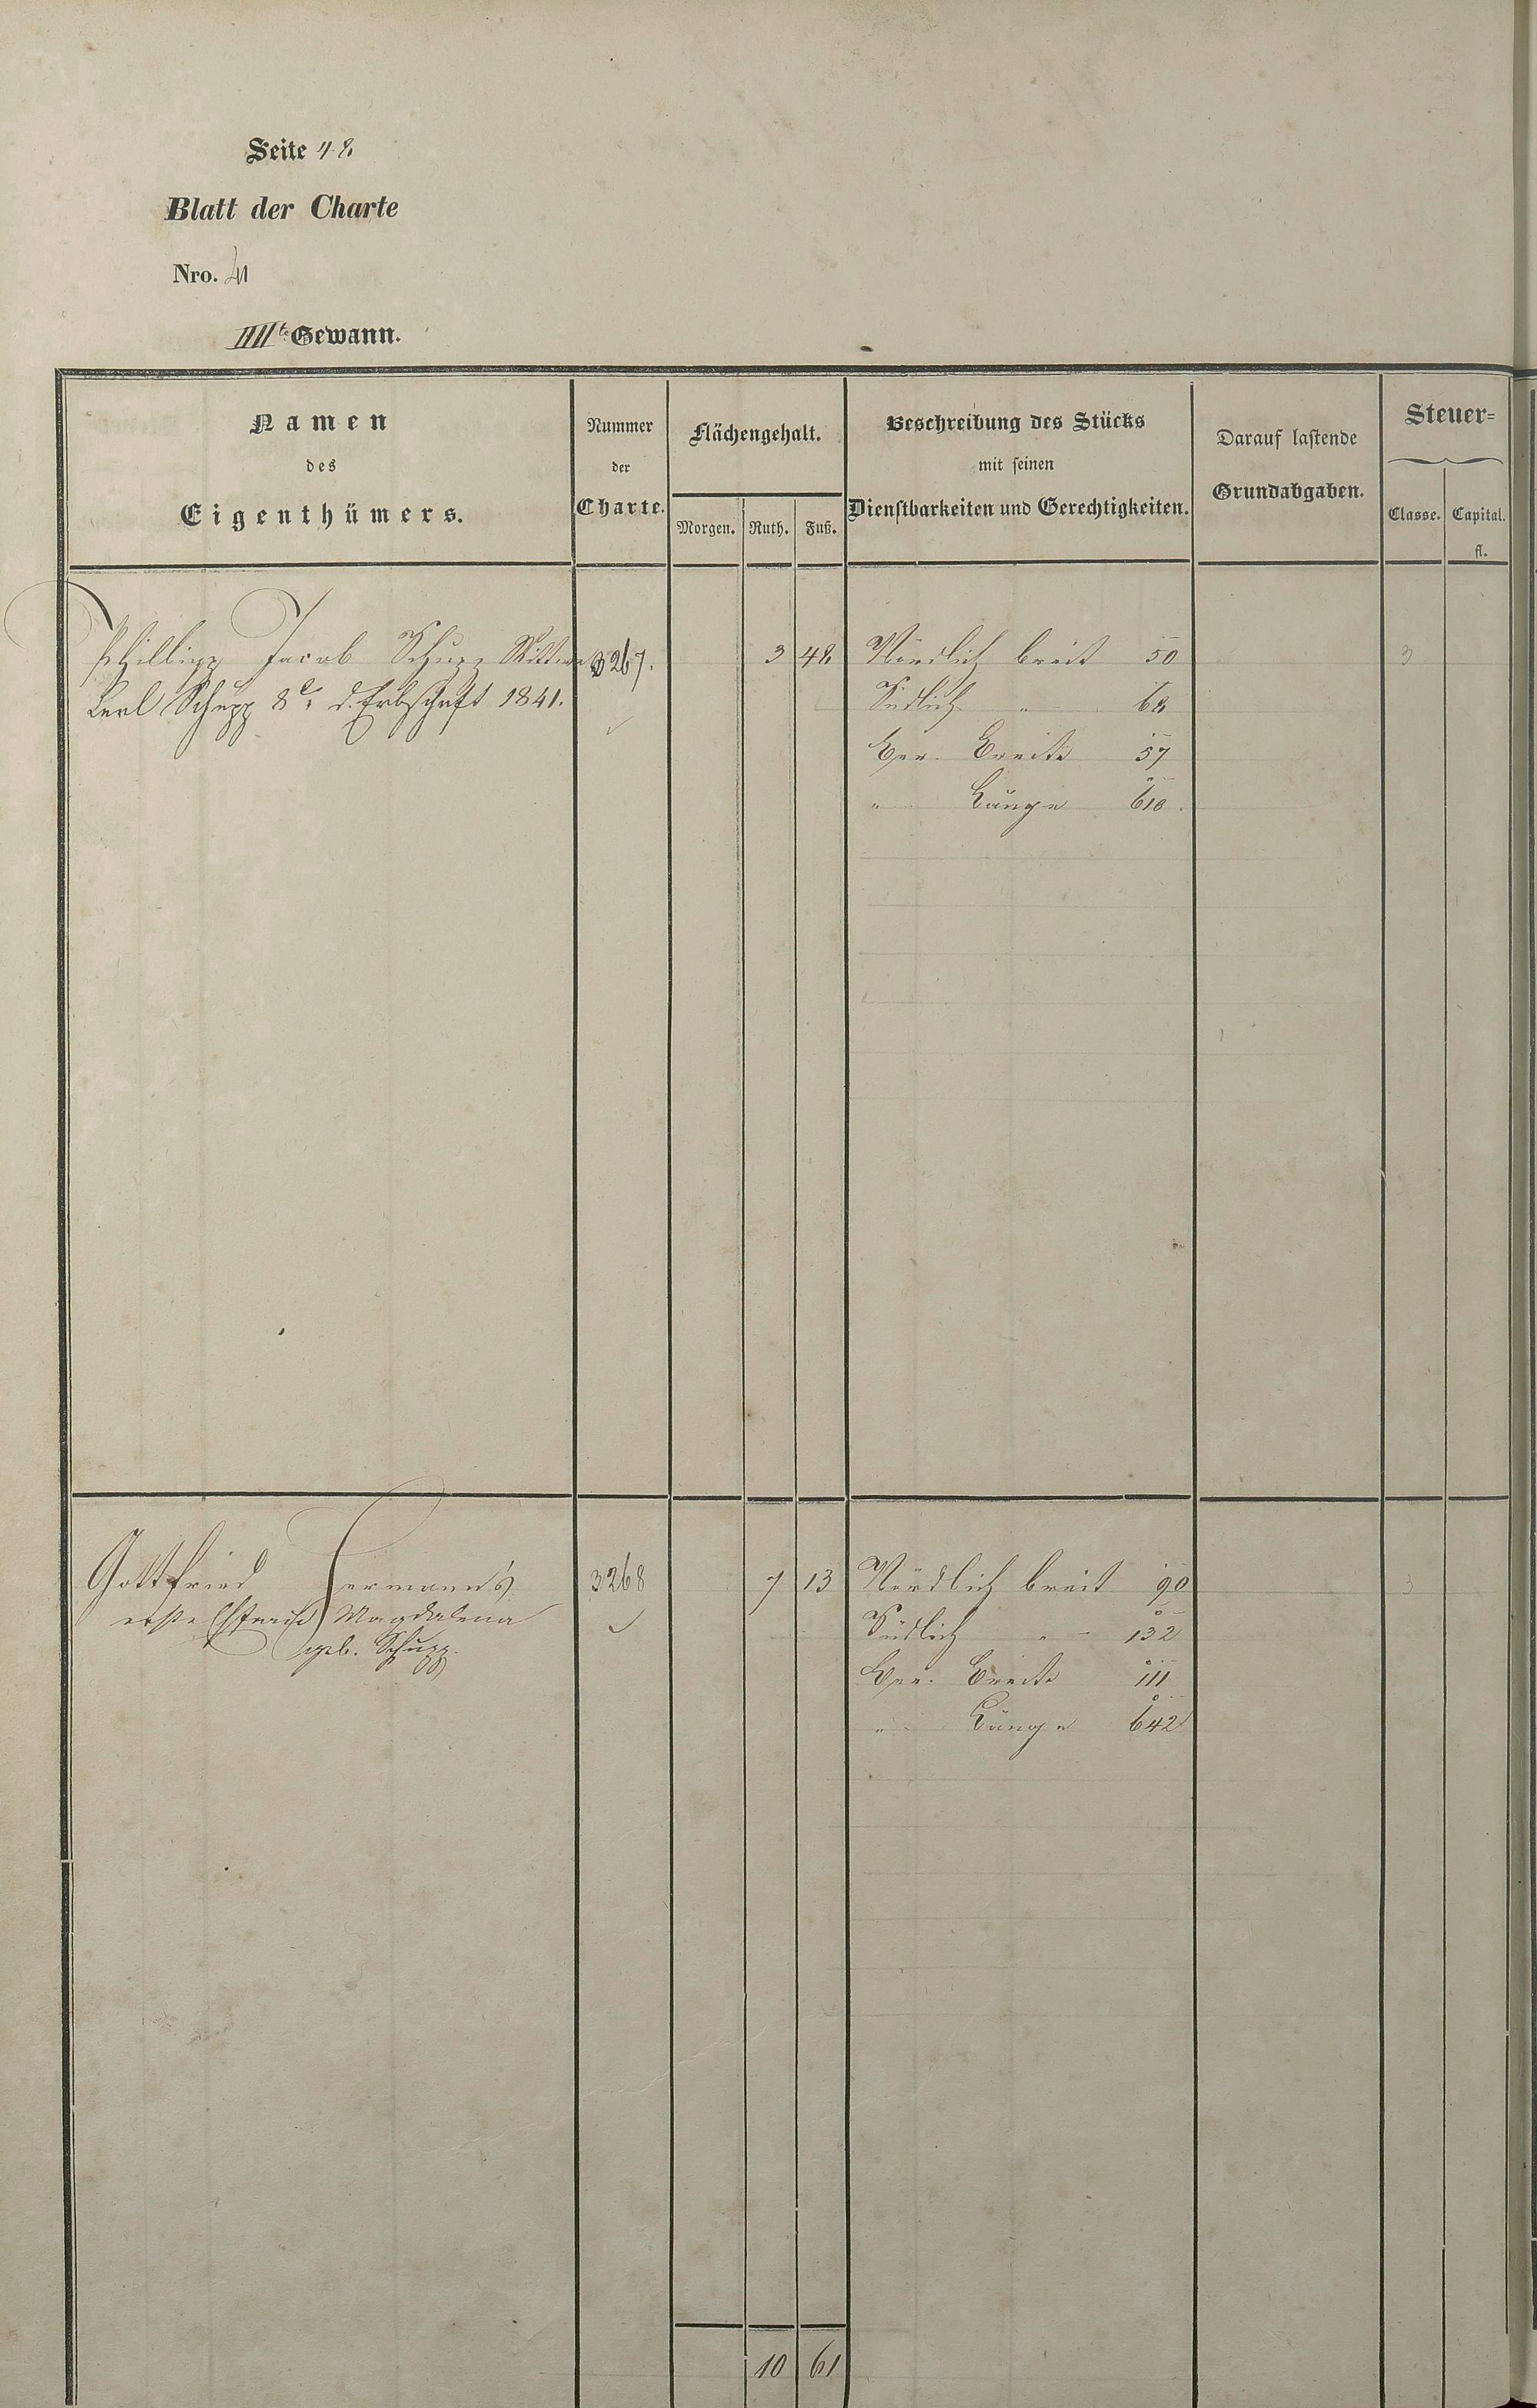 Seite 48
Blatt der Charte
Nro. 41
IIIIte Gewann.
Namen
des
Eigenthümers.
Nummer
der
Charte.
Flächengehalt.
Morgen. Ruth. Fuß.
Beschreibung des Stücks
mit seinen
Dienstbarkeiten und Gerechtigkeiten.
Darauf lastende
Grundabgaben.
Steuer-
Classe. Capital.
fl.
Phillipp Jacob Schupp Wittwe 3267. 3 48 Nördlich breit 50 3
Carl Schupp 8r d. Erbschaft 1841. Südlich " 64
Ger. Breite 57
" Länge 610.
Gottfried Hermann's 3268 7 13 Nördlich breit 90 3
erste Ehefrau Magdalena Südlich " 132
geb. Schupp. Ger. Breite 111
" Länge 642
10 61